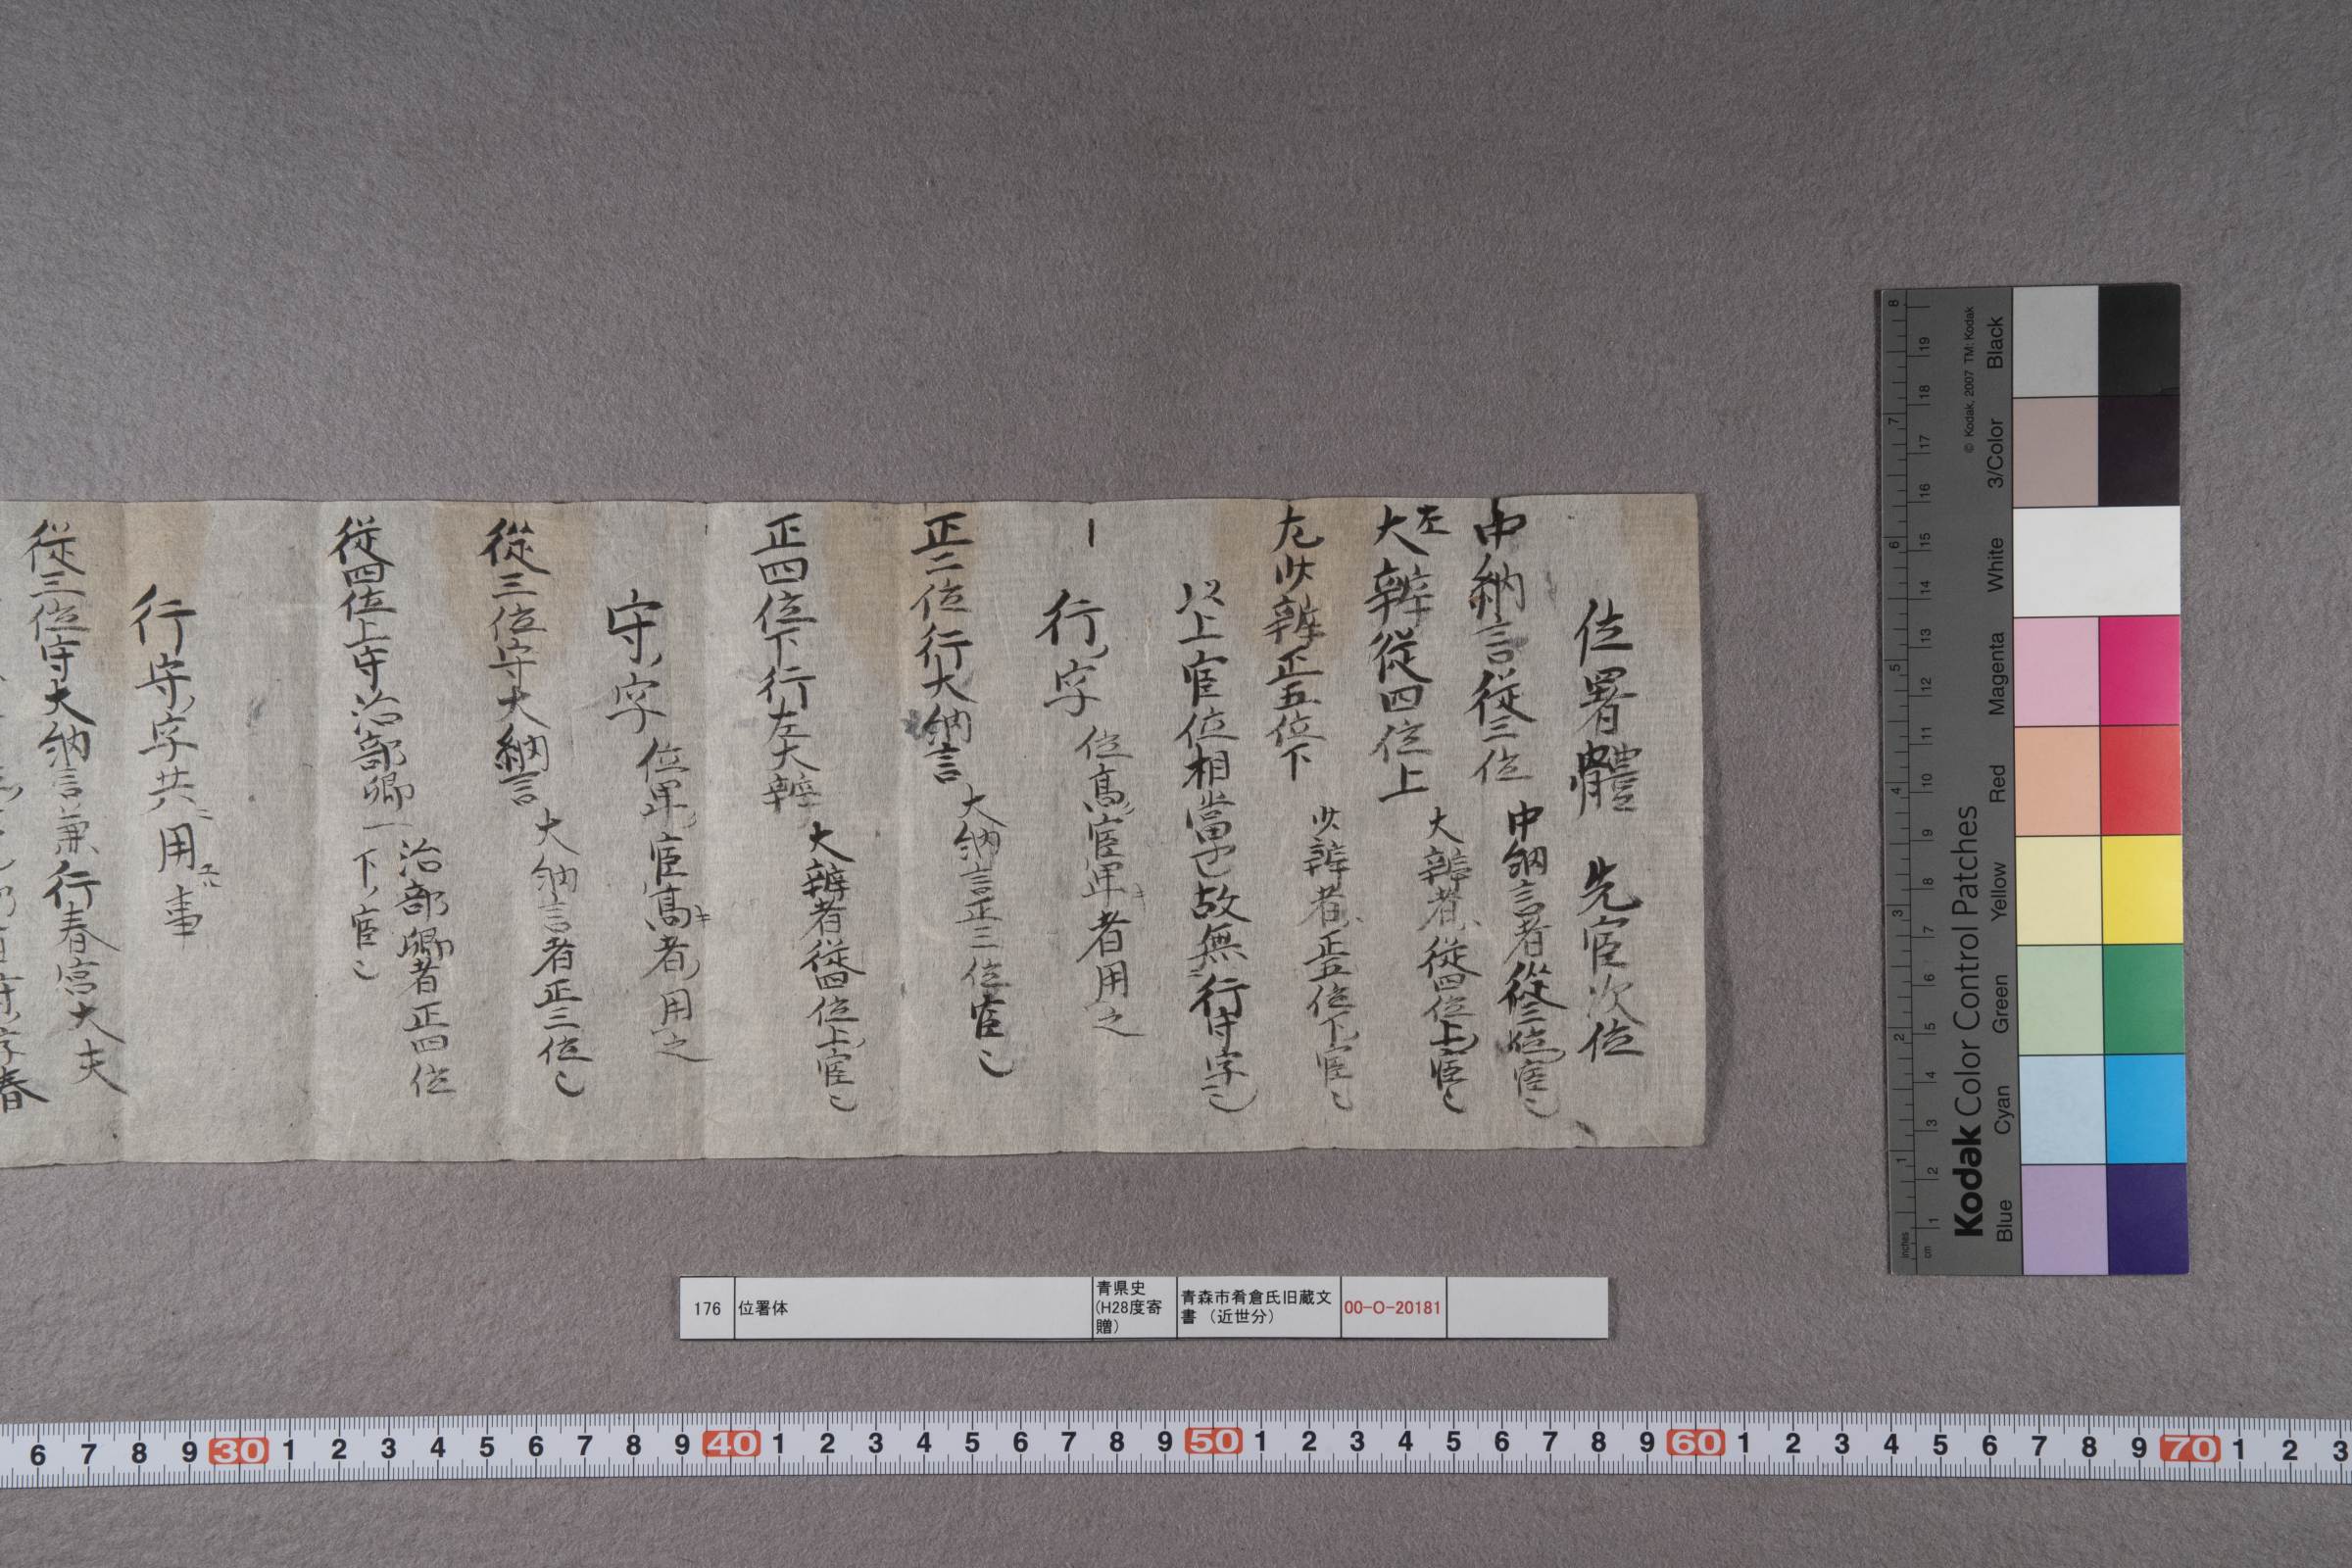 位署體　先官次位
中納言従三位　中納言者従三位ノ官也
左大辨従四位上　大辨者、従四位上ノ官也
左少辨正五位下　少辨者、正五位下ノ官也
以上官位相當也故無行守字也
一
行ノ字　位髙官卑者用之
正二位行大納言　大納言正三位官也
正四位下行左大辨　大辨者従四位上ノ官也
守ノ字　位卑官髙キ者ノ用之
従三位守大納言　大納言者正三位也
従四位上守治部卿　治部卿者正四位
下ノ官也
行守ノ字共ニ用ユル事
従三位守大納言兼行春宮大夫
春
176
位署体
青県史
(H28度寄
贈)
青森市肴倉氏旧蔵文
書（近世分）
00-O-20181
6 7 8 9 30 1 2 3 4 5 6 7 8 9 40 1 2 3 4 5 6 7 8 9 50 1 2 3 4 5 6 7 8 9 60 1 2 3 4 5 6 7 8 9 70 1 2 3
Kodak Color Control Patches
© Kodak, 2007 TM: Kodak
Blue Cyan Green Yellow Red Magenta White 3/Color Black
inches 1 2 3 4 5 6 7 8
cm 1 2 3 4 5 6 7 8 9 10 11 12 13 14 15 16 17 18 19